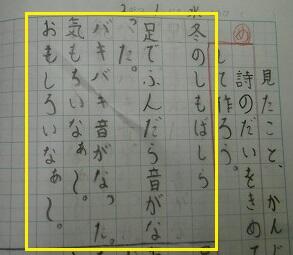 め
見たこと、かんじ
詩のだいをきめて
して作ろう。
冬のしもばしら
足でふんだら音がな
った。
バキバキ音がなった。
気もちいなぁ〜。
おもしろいなぁ〜。